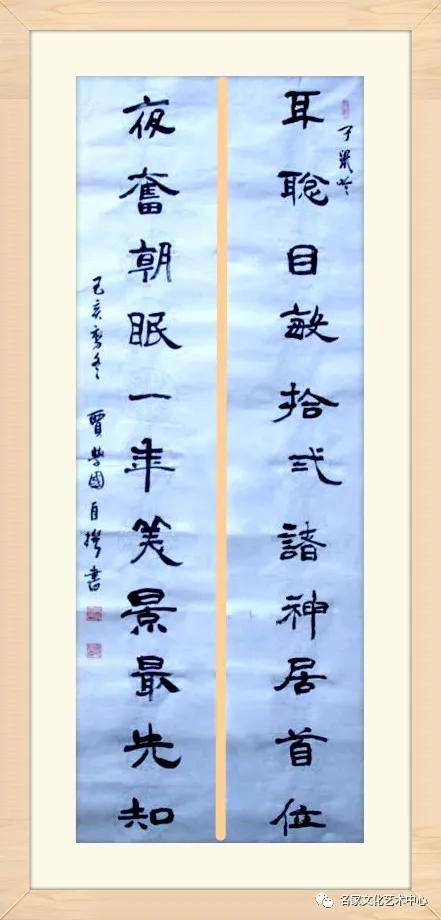 子鼠吟
耳聪目敏拾弍諸神居首位
夜奮朝眠一年美景最先知
己亥季冬 賈學國自撰書
名家文化艺术中心